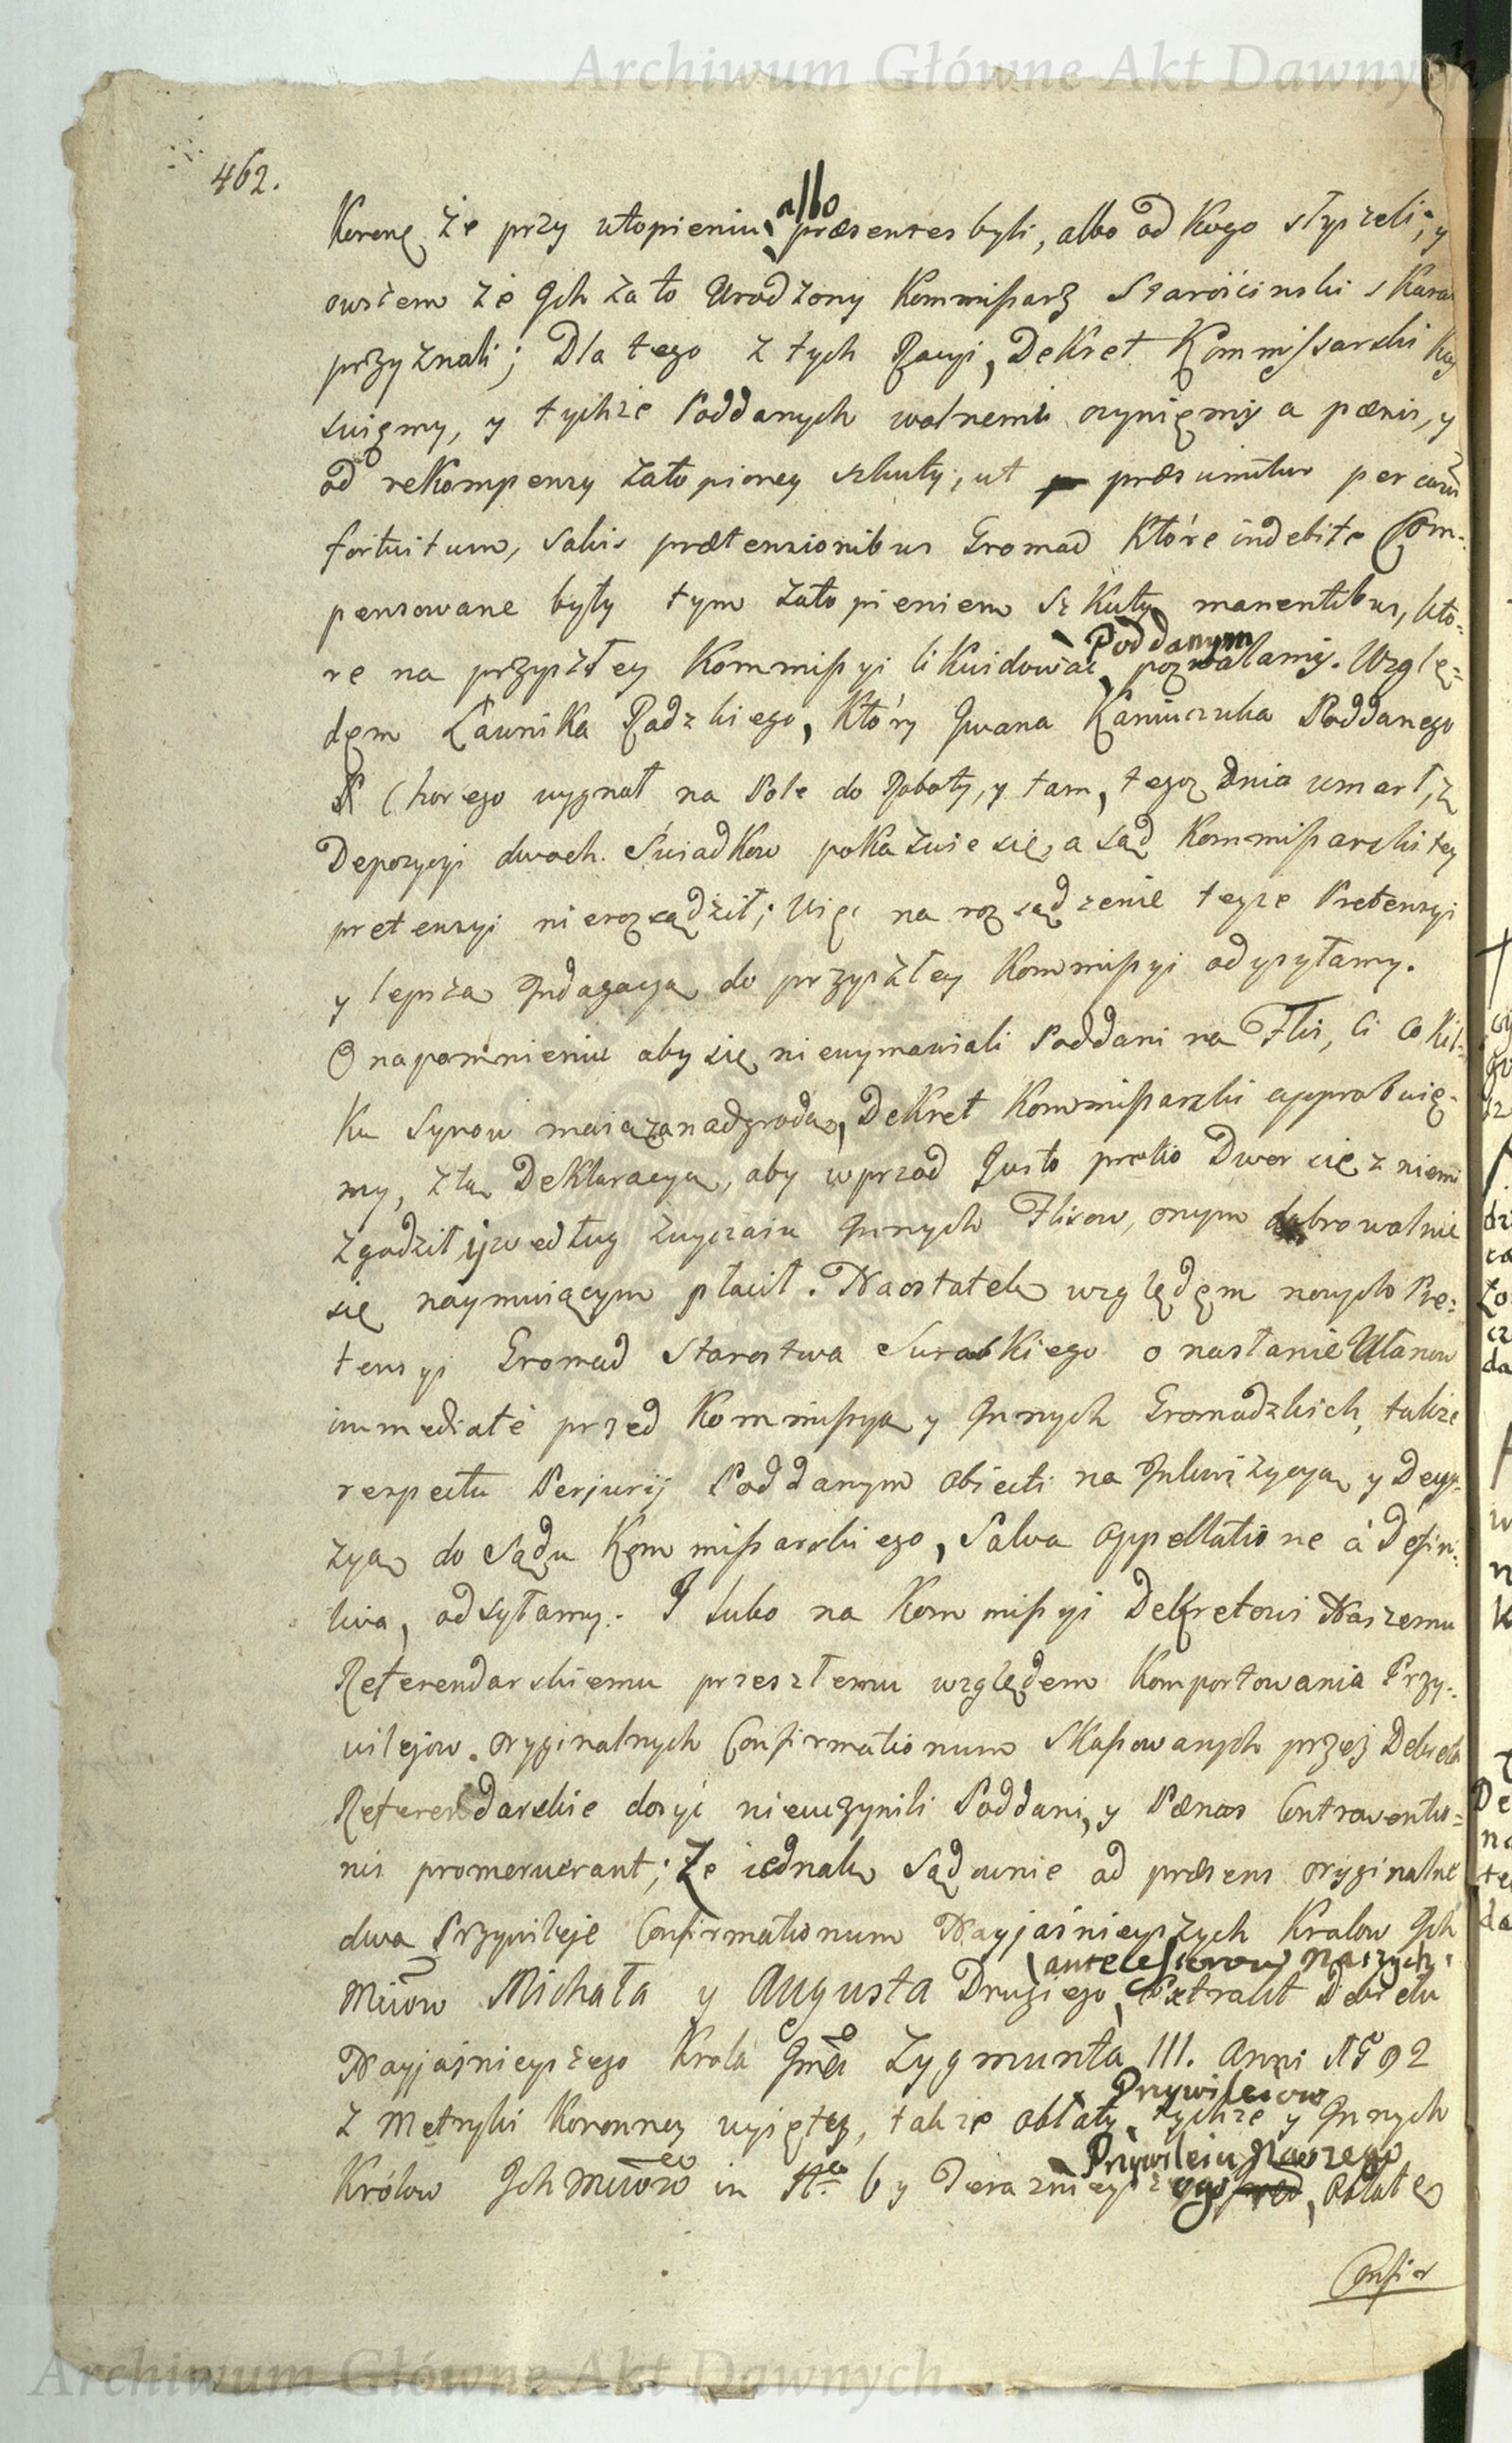 Archiwum Główne Akt Dawnych
462.
albo
Koronę że przy utopieniu præsentes byli, albo od kogo słyszeli; y
owszem że Jch za to Urodzony Kommissarz Starościnski skarał
przyznali; Dla tego z tych Racyi, Dekret Kommissarski kas
suięmy, y tychże Poddanych wolnemi czynięmy a pœnis, y
od rekompensy zatopioney szkuty, ut præsumitur per casũ
fortuitum, salvis prætensionibus Gromad które indebite Com-
pensowane były tym zatopieniem szkuty manentibus, kto-
Poddanym
re na przyszłey Kommissyi likwidować pozwalamy. Wzglę-
dęm Ławnika Radzkiego, który Jwana Kaniuczuka Poddanego
Chorego wygnał na Pole do Roboty, y tam, tegoz dnia umarł, z
Depozycyi dwoch Swiadkow pokazuie się, a sąd Kommissarski tey
pretensyi nierozsądził; Więc na rozsądzenie teyze Pretensyi
y lepszą Jndagacyą do przyszłey Kommissyi odysyłamy.
O napomnieniu aby się niewymawiali Poddani na Flis, Ci co kil-
ku Synow maią za nadgrodą, Dekret Kommissarski approbuię-
my, z tą Deklaracyą, aby wprzod justo pretio Dwor się z niemi
zgodził y według zwyczaiu Jnnych Flisow, onym dobrowolnie
się naymuiącym płacił. Naostatek względęm nowych Pre-
tensyi Gromad Starostwa Suraskiego o nasłanie Ułanow
immediatè przed Kommissyą y Jnnych Gromadzkich, takze
respectu Perjurij Poddanym objecti na Jnkwizycyą y Decy-
zyą do Sądu Kommissarskiego, Salva Appellatione à Defini-
tiva, odsyłamy. I lubo na Kommissyi Dekretowi Naszemu
Referendarskiemu przeszłemu względem komportowania Przy-
wilejow oryginalnych Confirmationum Skassowanych przez Dekreta
Referendarskie dosyć nieuczynili Poddani, y Pœnas Contraventio-
nis promeruerant; Ze iednak Sądownie ad præsens oryginalne
dwa Przywileje Confirmationum Nayjaśnieyszych Krolow Jch
antecessorow Naszych
Mciow Michała y Augusta Drugiego, Extrakt Dekretu
Nayjaśnieyszego Krola Jmci Zygmunta III. Anni 1592
Przywileiow
z Metryki Koronney wyiętey, takze oblaty tychze y Jnnych
Przywileiu Naszego
Królow Jch Mciow in No 6 y Teraznieyszego, oblatę
Confir
Archiwum Główne Akt Dawnych